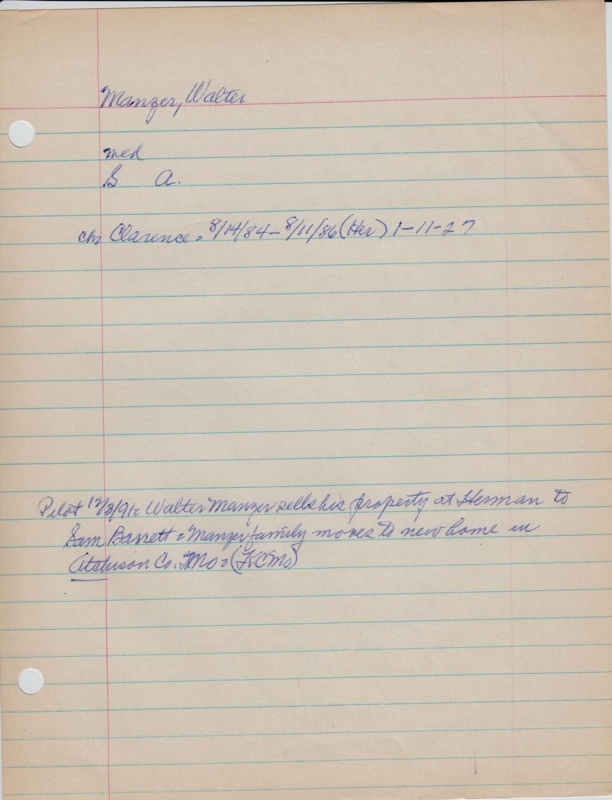 Manzer, Walter
med
S A.
ch: Clarence = 8/14/84 - 8/11/86 (Her) 1-11-27
Pilot 12/3/91 = Walter Manzer sells his property at Herman to
Sam Barrett = Manzer family moves to new home in
Atchison Co. Mo = (FCMo)